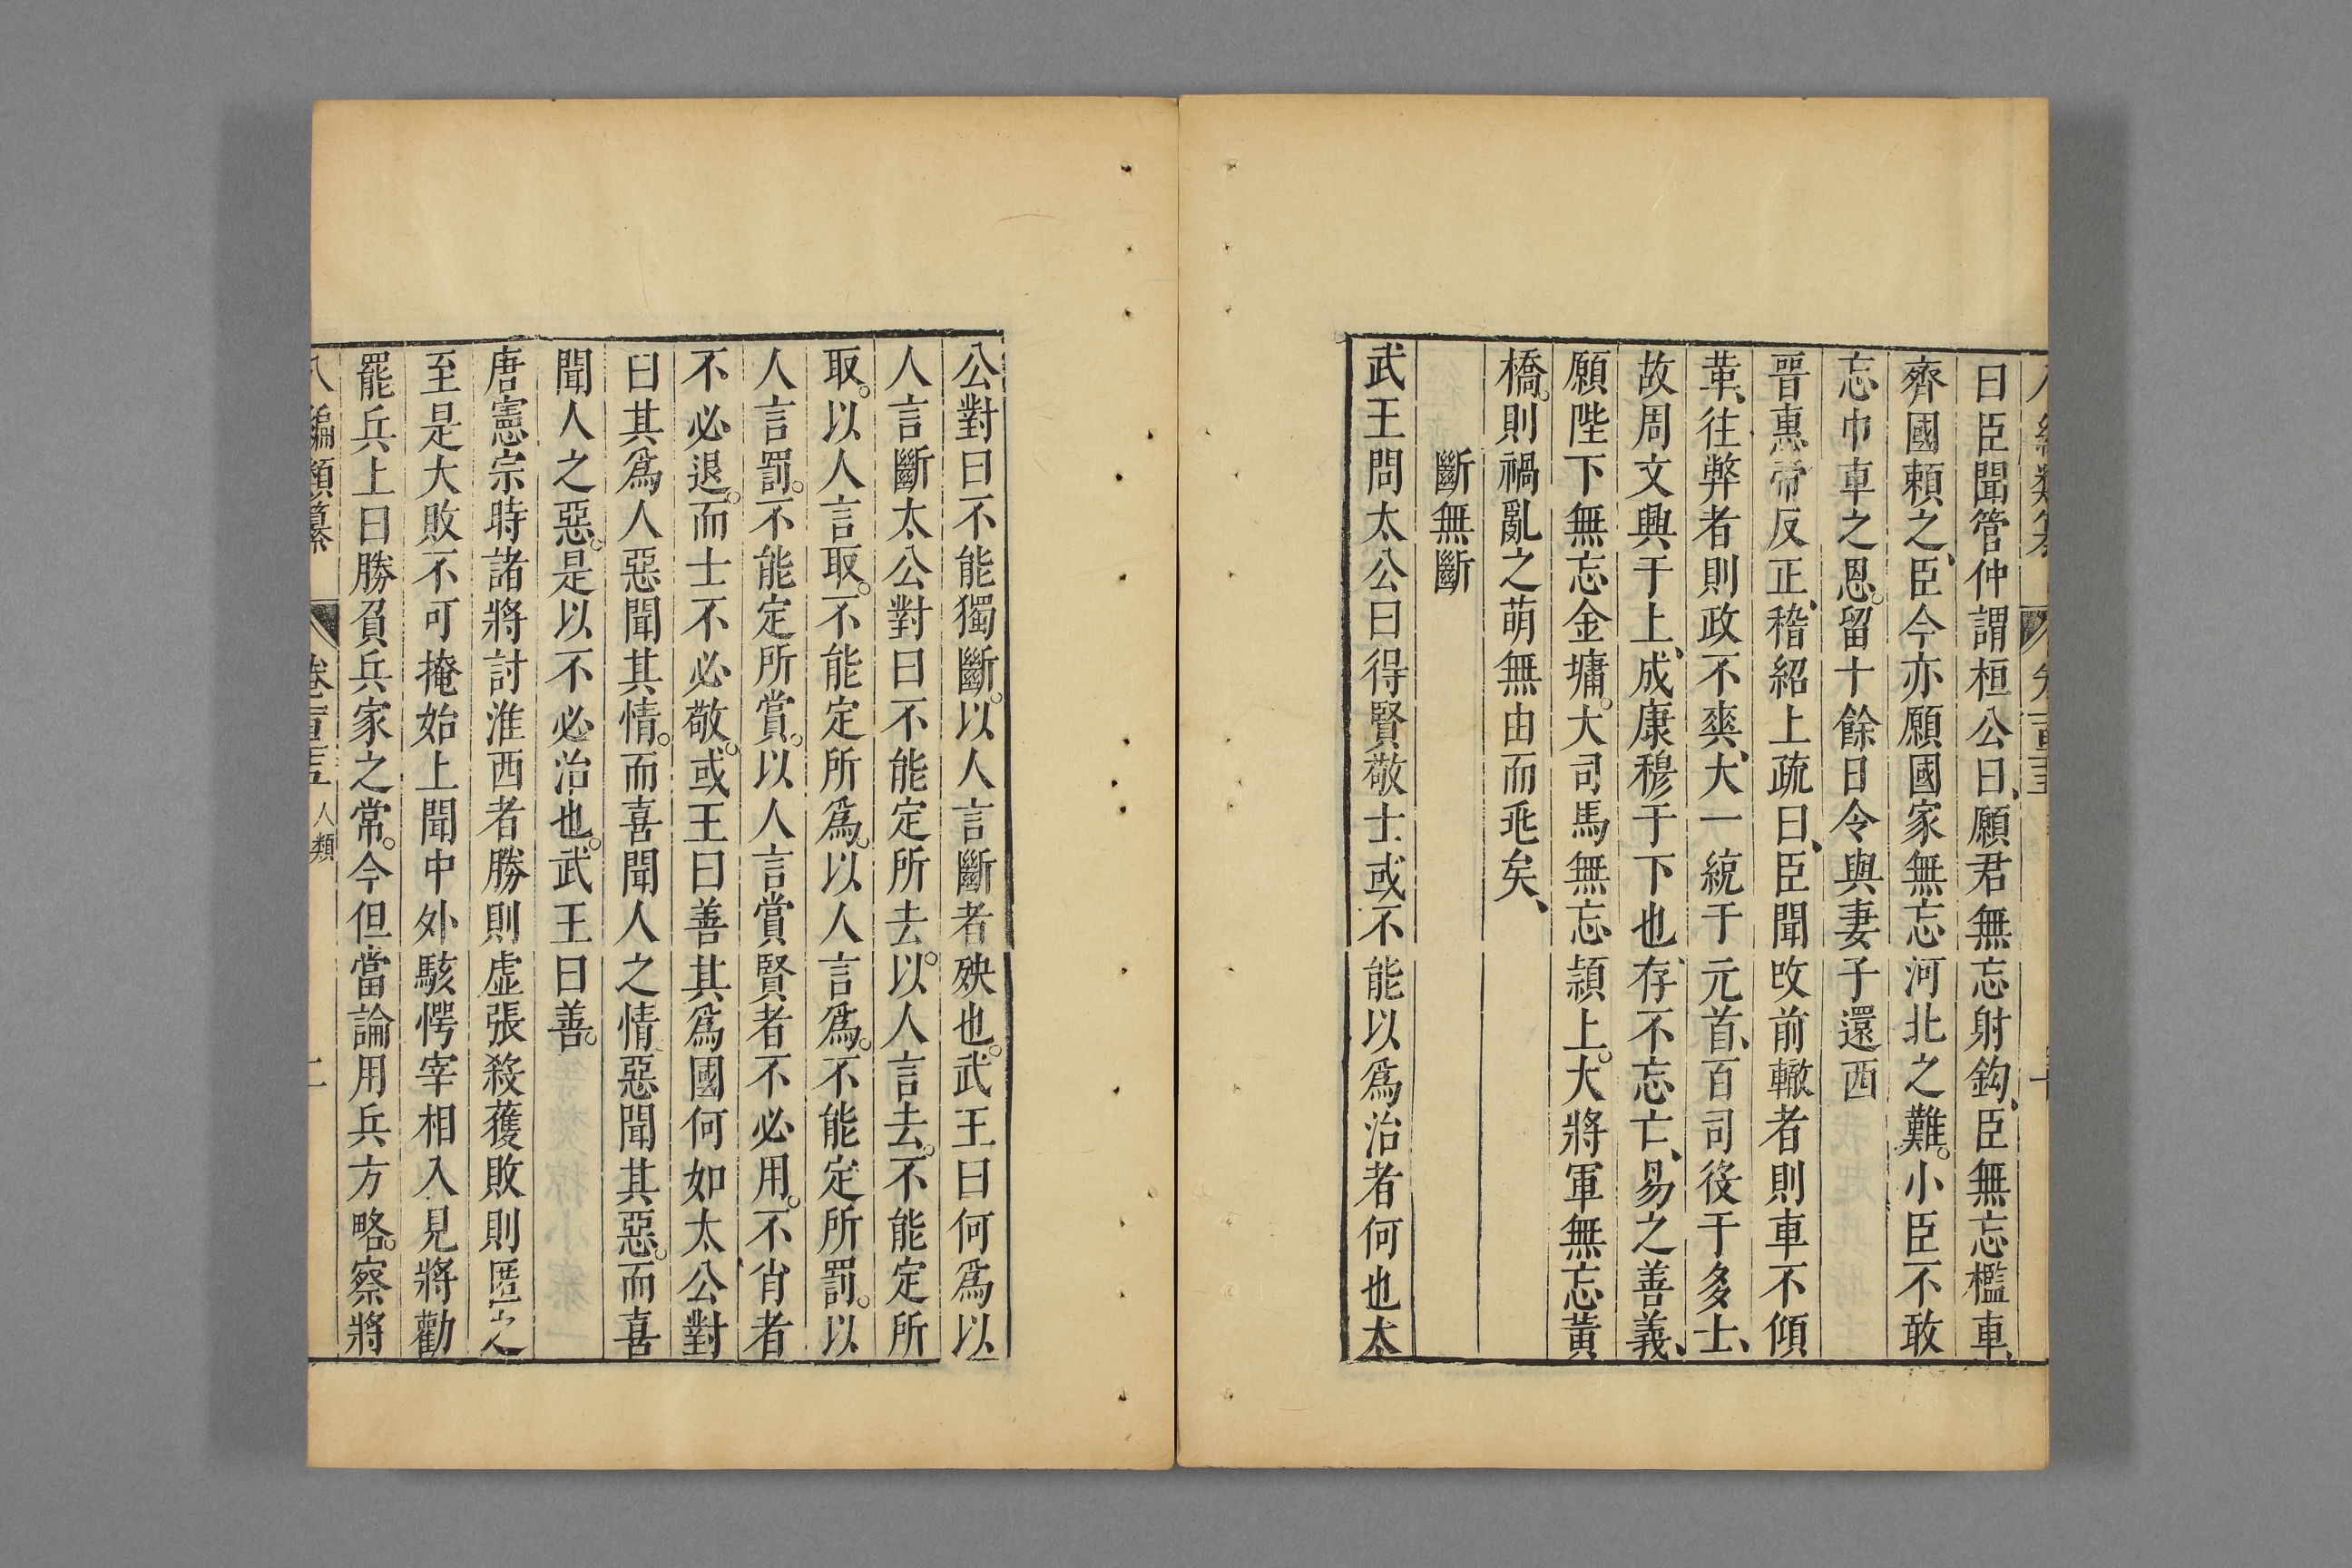 曰臣聞管仲謂桓公曰願君無忘射鈎臣無忘檻車
齊國賴之臣今亦願國家無忘河北之難小臣不敢
忘巾車之恩留十餘日令與妻子還西
晉惠帝反正稽紹上疏曰臣聞改前轍者則車不傾
革往弊者則政不爽大一統于元首百司役于多士
故周文興于上成康穆于下也存不忘亡易之善義
願陛下無忘金墉大司馬無忘潁上大將軍無忘黃
橋則禍亂之萌無由而乖矣
斷無斷
武王問太公曰得賢敬士或不能以爲治者何也太
公對曰不能獨斷以人言斷者殃也武王曰何爲以
人言斷太公對曰不能定所去以人言去不能定所
取以人言取不能定所爲以人言爲不能定所罰以
人言罰不能定所賞以人言賞賢者不必用不肖者
不必退而士不必敬或王曰善其爲國何如太公對
曰其爲人惡聞其情而喜聞人之情惡聞其惡而喜
聞人之惡是以不必治也武王曰善
唐憲宗時諸將討淮西者勝則虛張殺獲敗則匿之
至是大敗不可掩始上聞中外駭愕宰相入見將勸
罷兵上曰勝負兵家之常今但當論用兵方略察將
八編類纂 卷百五 人類